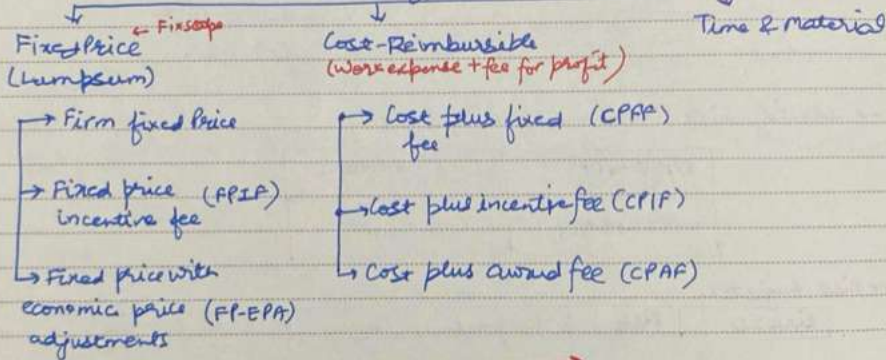 Fixed Price ← Fixscope
(Lumpsum)
→ Firm fixed Price
→ Fixed price (FPIF)
incentive fee
→ Fixed price with
economic price (FP-EPA)
adjustments
Cost-Reimbursible
(Work expense + fee for profit)
→ Cost plus fixed (CPFF)
fee
→ Cost plus incentive fee (CPIF)
→ Cost plus award fee (CPAF)
Time & Material